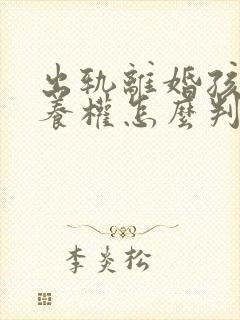 出轨離婚孩
養權怎麼判
李炎松